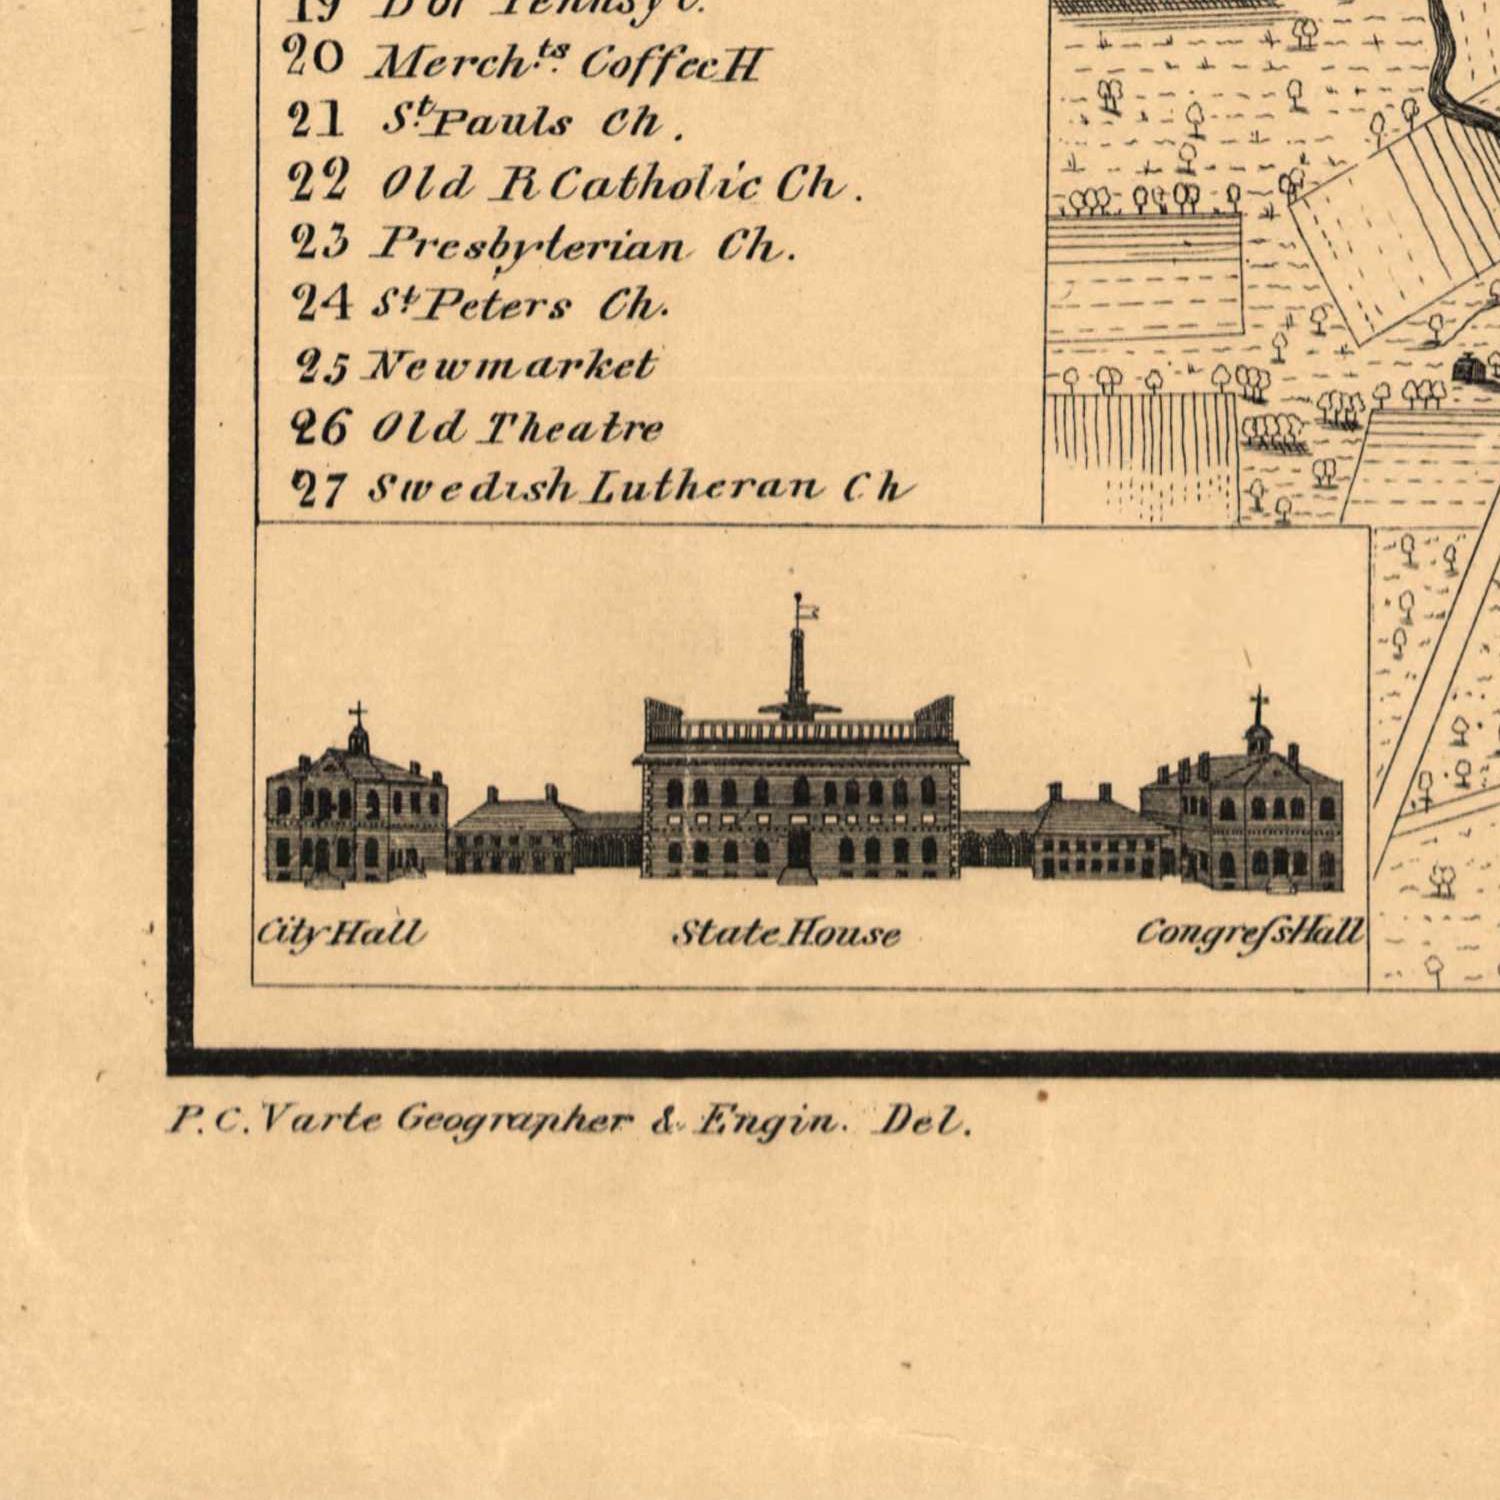 19 D
20 Merch.ts Coffee H
21 St. Pauls Ch.
22 Old R Catholic Ch.
23 Presbyterian Ch.
24 St. Peters Ch.
25 Newmarket
26 Old Theatre
27 Swedish Lutheran Ch
City Hall State House Congreſs Hall
P. C. Varte Geographer & Engin. Del.